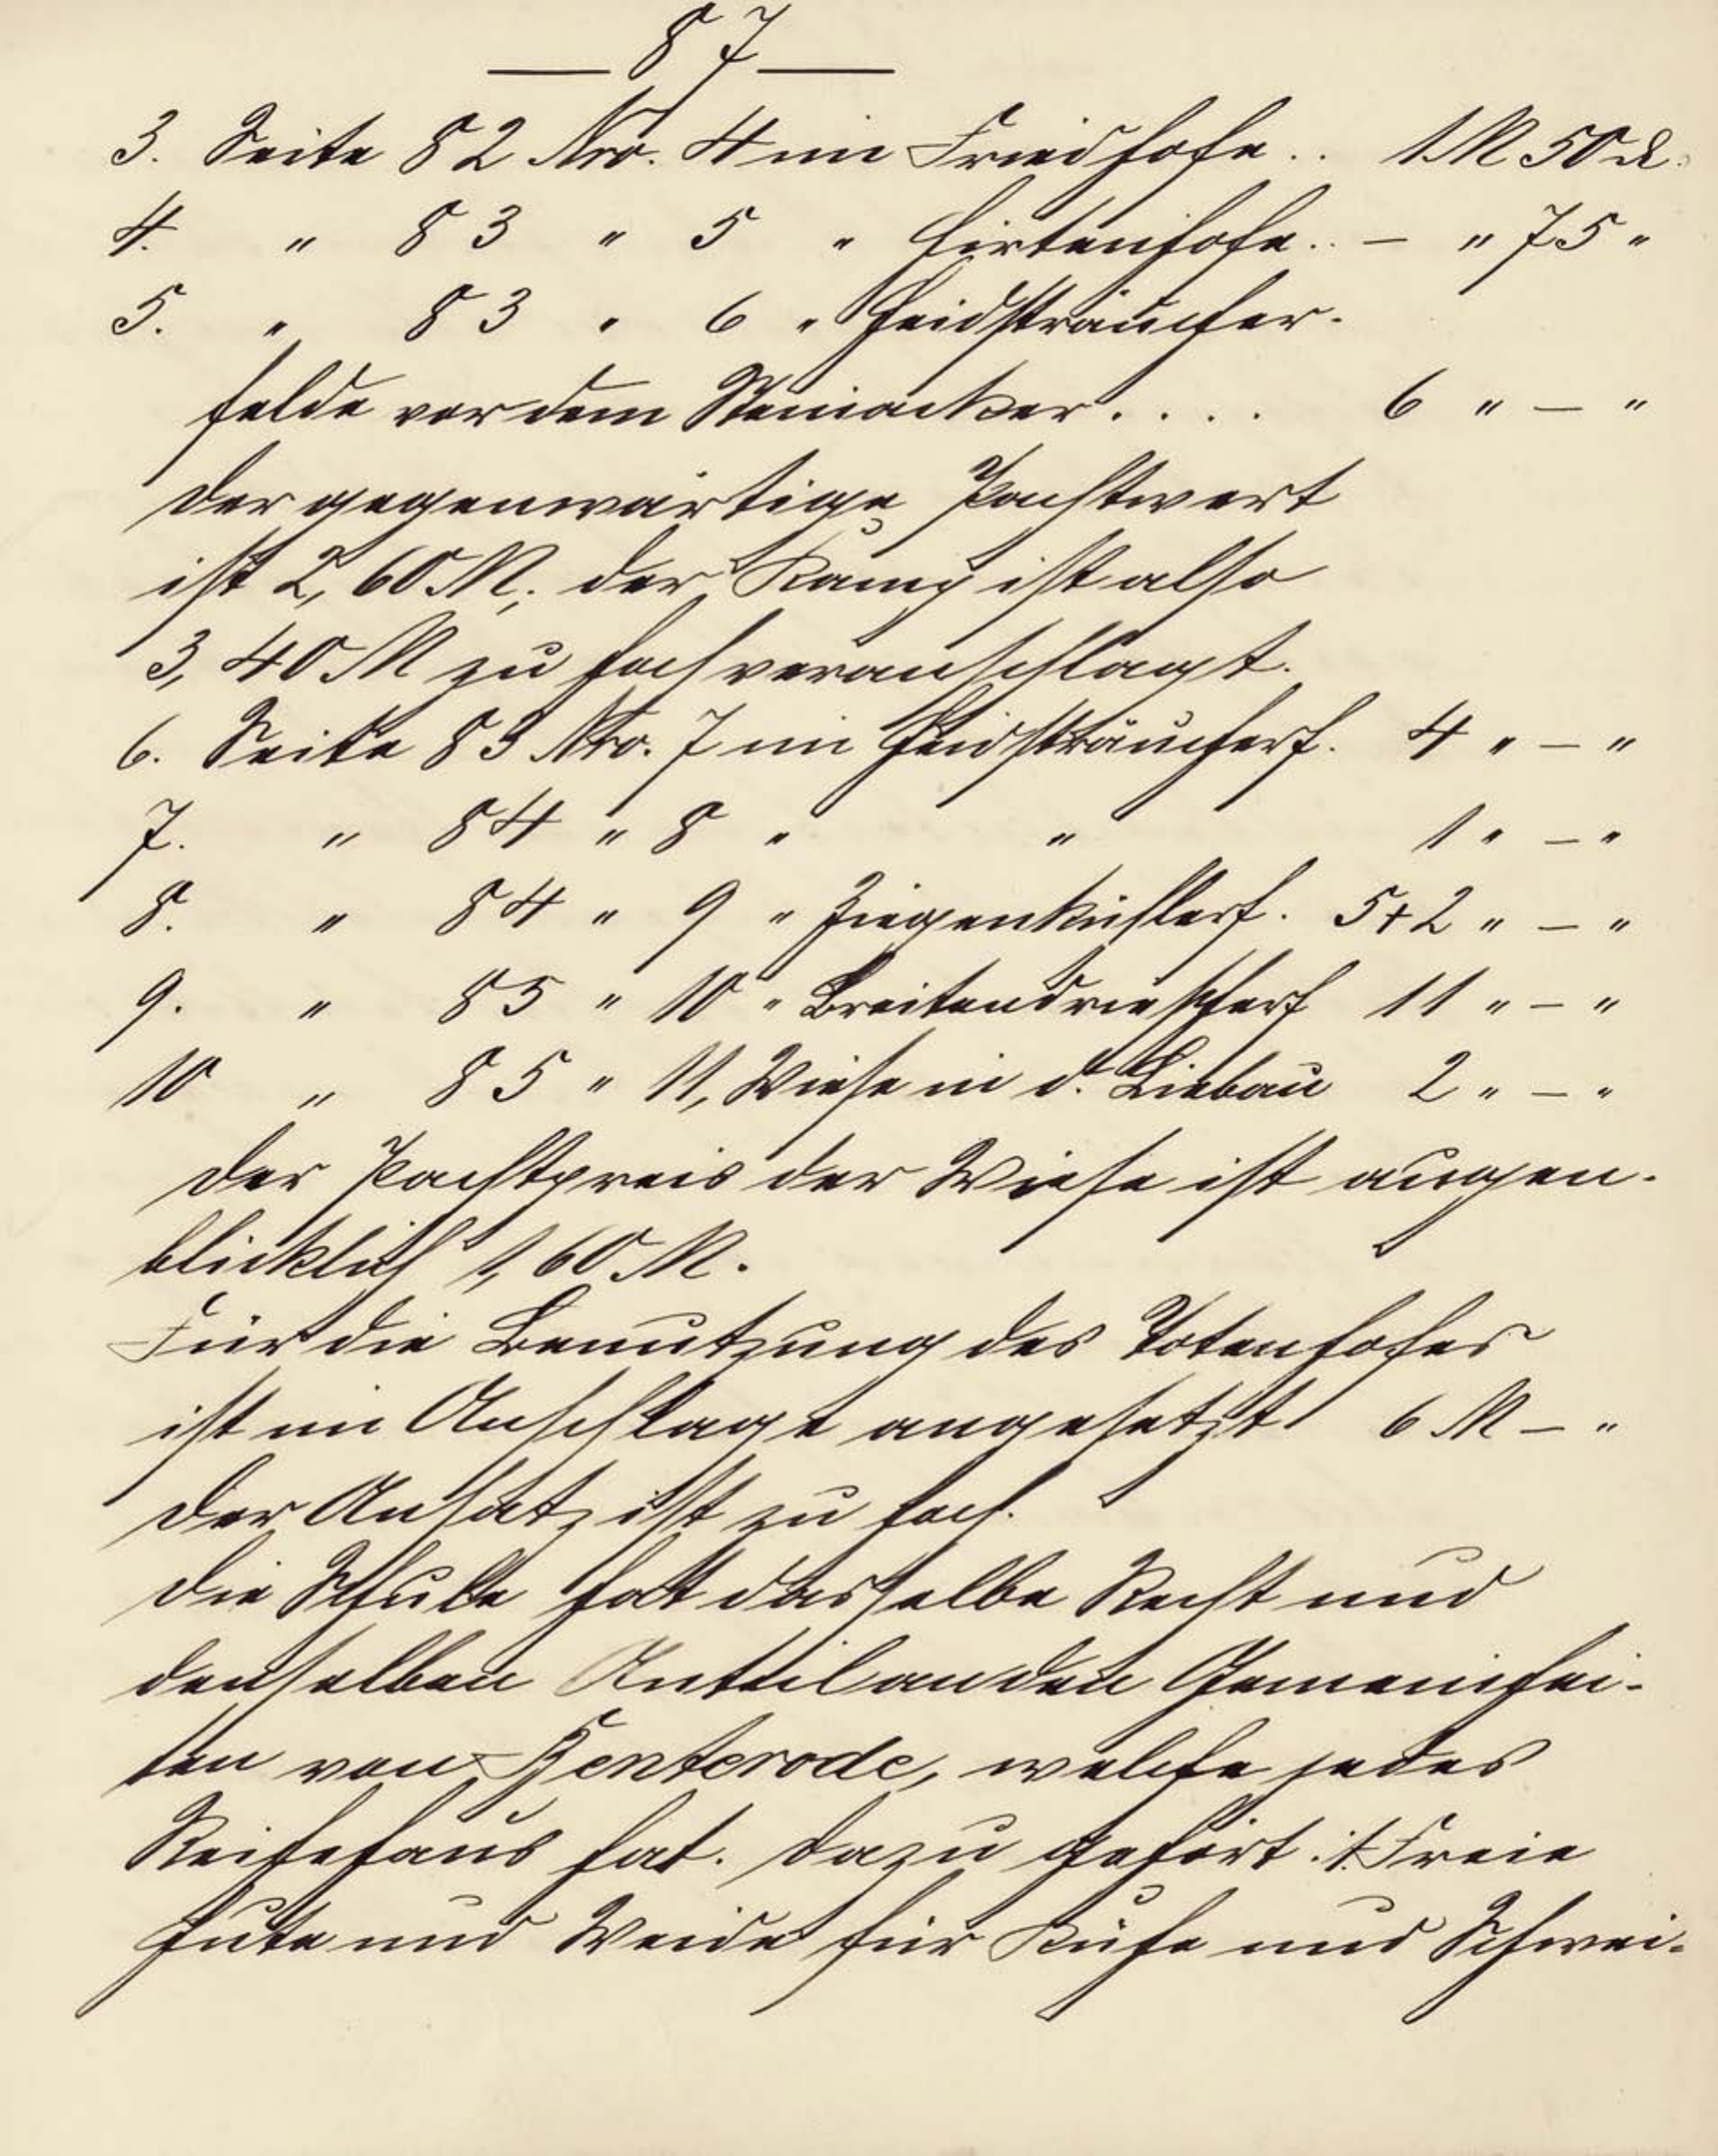 87
3. Seite 82 Nro. 4 im Friedhofe .. 1 M 50 ₰.
4. " 83 " 5 " Hirtenhofe .. – " 75 "
5. " 83 " 6 " Heidsträucher-
felde vor dem Steinacker . . . . 6 " – "
Der gegenwärtige Pachtwert
ist 2,60 M; der Kamp ist also
3,40 M zu hoch veranschlagt.
6. Seite 83 Nro. 7 im Heidsträucherf. 4 " – "
7. " 84 " 8 " " 1 " – "
8. " 84 " 9 " Ziegenkühlerf. 5+2 " – "
9. " 85 " 10 " Breitendrieschf 11 " – "
10 " 85 " 11, Wiese in d. Liebau 2 " – "
Der Pachtpreis der Wiese ist augen-
blicklich 1,60 M.
Für die Benutzung des Totenhofes
ist im Anschlage angesetzt 6 M – "
Der Ansatz ist zu hoch.
Die Schule hat dasselbe Recht und
denselben Anteil an den Gemeinhei-
ten von Benterode, welche jedes
Reihehaus hat. Dazu gehört: 1. Freie
Hute und Weide für Kühe und Schwei-